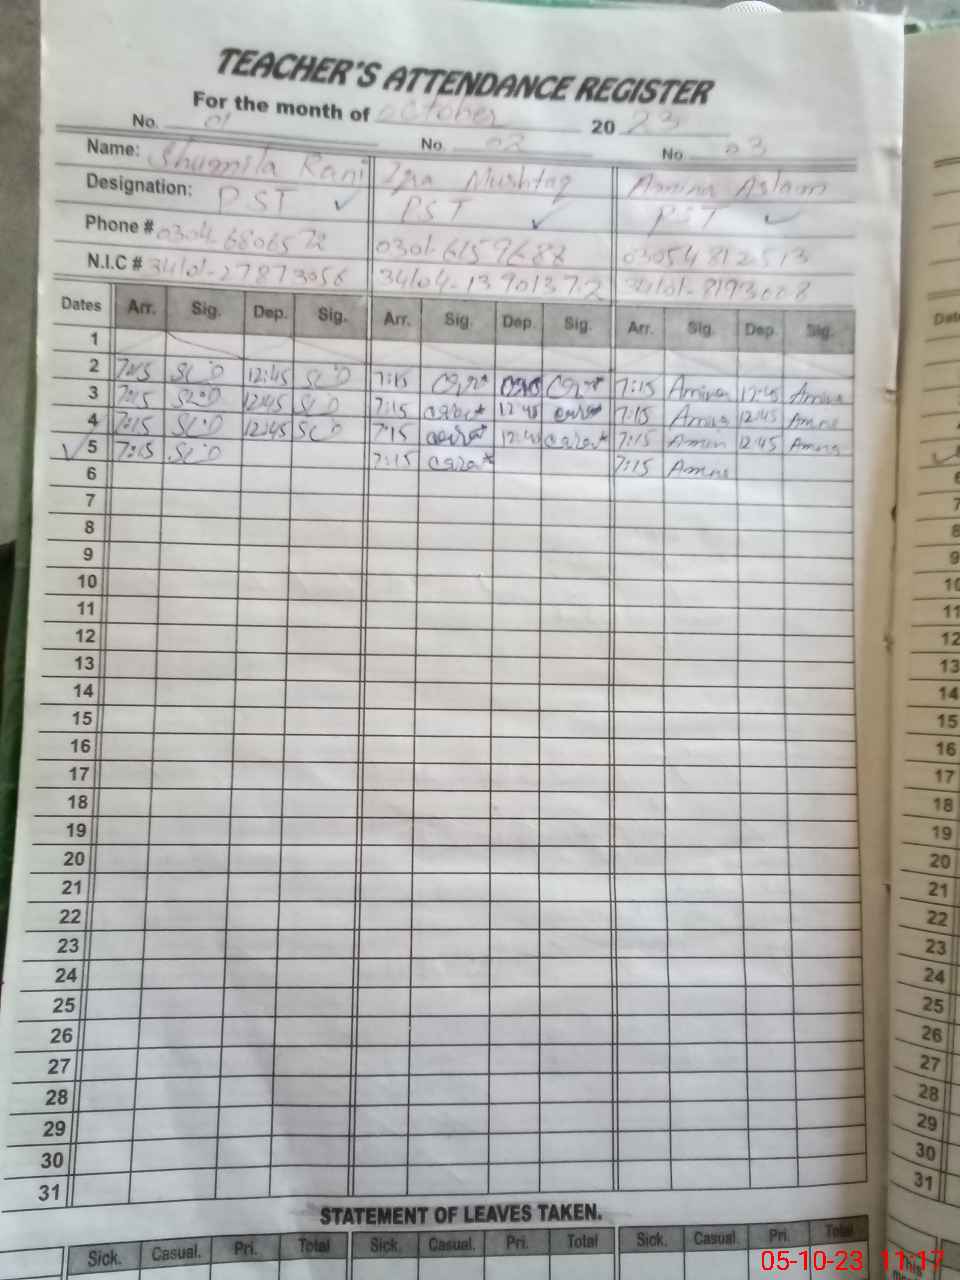 TEACHER'S ATTENDANCE REGISTER
For the month of October 2023
No. 01 No. 02 No. 03
Name: Shumila Rani Iqra Mushtaq Amina Aslam
Designation: PST PST PST
Phone # 0304-6806572 0301-6159688 03054812513
N.I.C # 34101-27873056 34104-13901372 34101-8193008
Dates Arr. Sig. Dep. Sig. Arr. Sig. Dep. Sig. Arr. Sig. Dep. Sig.
1
2 7:15 12:45 7:15 7:15 Amina 12:45 Amina
3 7:15 12:45 7:15 12:45 7:15 Amina 12:45 Amna
4 7:15 12:45 7:15 12:45 7:15 Amin 12:45 Amna
5 7:15 7:15 7:15 Amna
6
7
8
9
10
11
12
13
14
15
16
17
18
19
20
21
22
23
24
25
26
27
28
29
30
31
STATEMENT OF LEAVES TAKEN.
Sick. Casual. Pri. Total Sick. Casual. Pri. Total Sick. Casual. Pri. Total
05-10-23 11:17